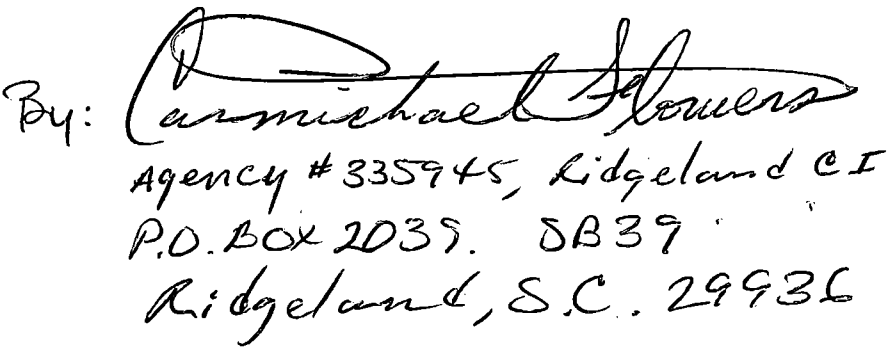 By: Carmichael Flowers
Agency #335945, Ridgeland CI
P.O. BOX 2039. SB39
Ridgeland, S.C. 29936